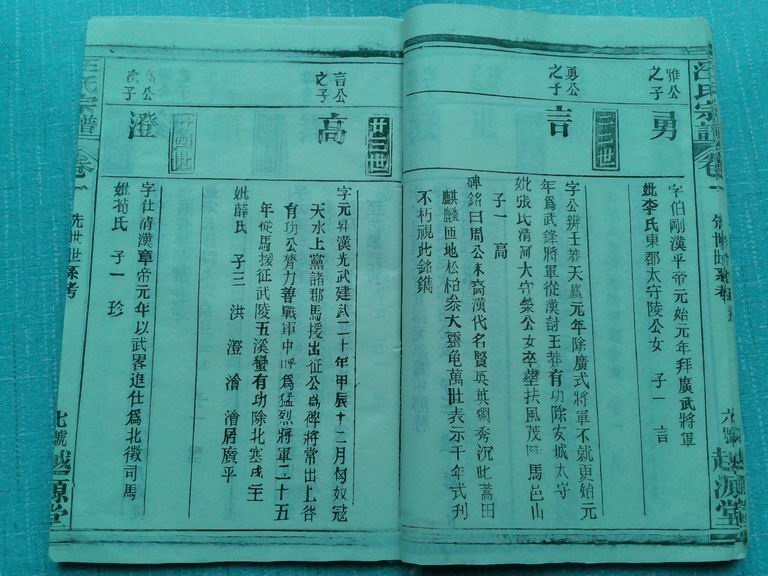 汪氏宗譜
卷一
先世世系考
越源堂
雅公
之子
勇
字伯剛漢平帝元始元年拜廣武將軍
妣李氏東郡太守陵公女　子一　言
廿二世
勇公
之子
言
字公辨王莽天鳳元年除廣式將軍不就更始元
年為武鋒將軍從漢討王莽有功除安城太守
妣張氏清河太守榮公女卒塟扶風茂陵馬邑山
子一　高
碑銘曰周公末裔漢代名賢英英獨秀沉此蒿田
麒麟匝地松柏叅天靈龜萬世表示千年式刋
不朽視此銘鐫
廿三世
言公
之子
高
字元昇漢光武建武二十年甲辰十二月匈奴冦
天水上黨諸郡馬援出征公為稗將常出上谷
有功公膂力善戰軍中呼為猛烈將軍二十五
年從馬援征武陵五溪蠻有功除北塞戍主
妣薛氏　子三　洪　澄　澮　澮居廣平
廿四世
高公
次子
澄
字仕清漢章帝元年以武畧進仕爲北徵司馬
妣荀氏　子一　珍
汪氏宗譜
卷一
先世世系考
北號
越源堂